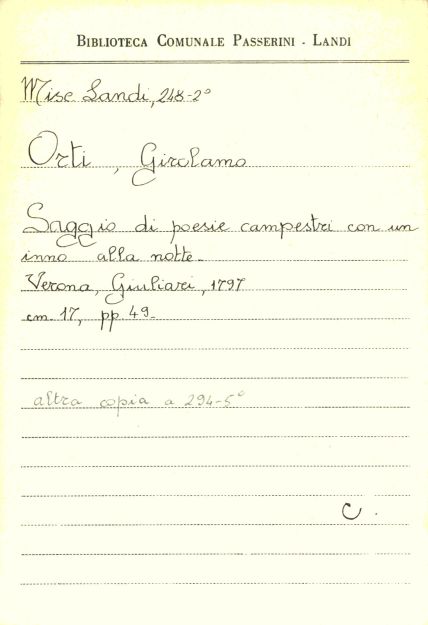 BIBLIOTECA COMUNALE PASSERINI - LANDI
Misc Landi, 248-2°
Orti, Girolamo
Saggio di poesie campestri con un
inno alla notte -
Verona, Giuliari, 1797
cm. 17, pp. 49 -
altra copia a 294-5°
C.